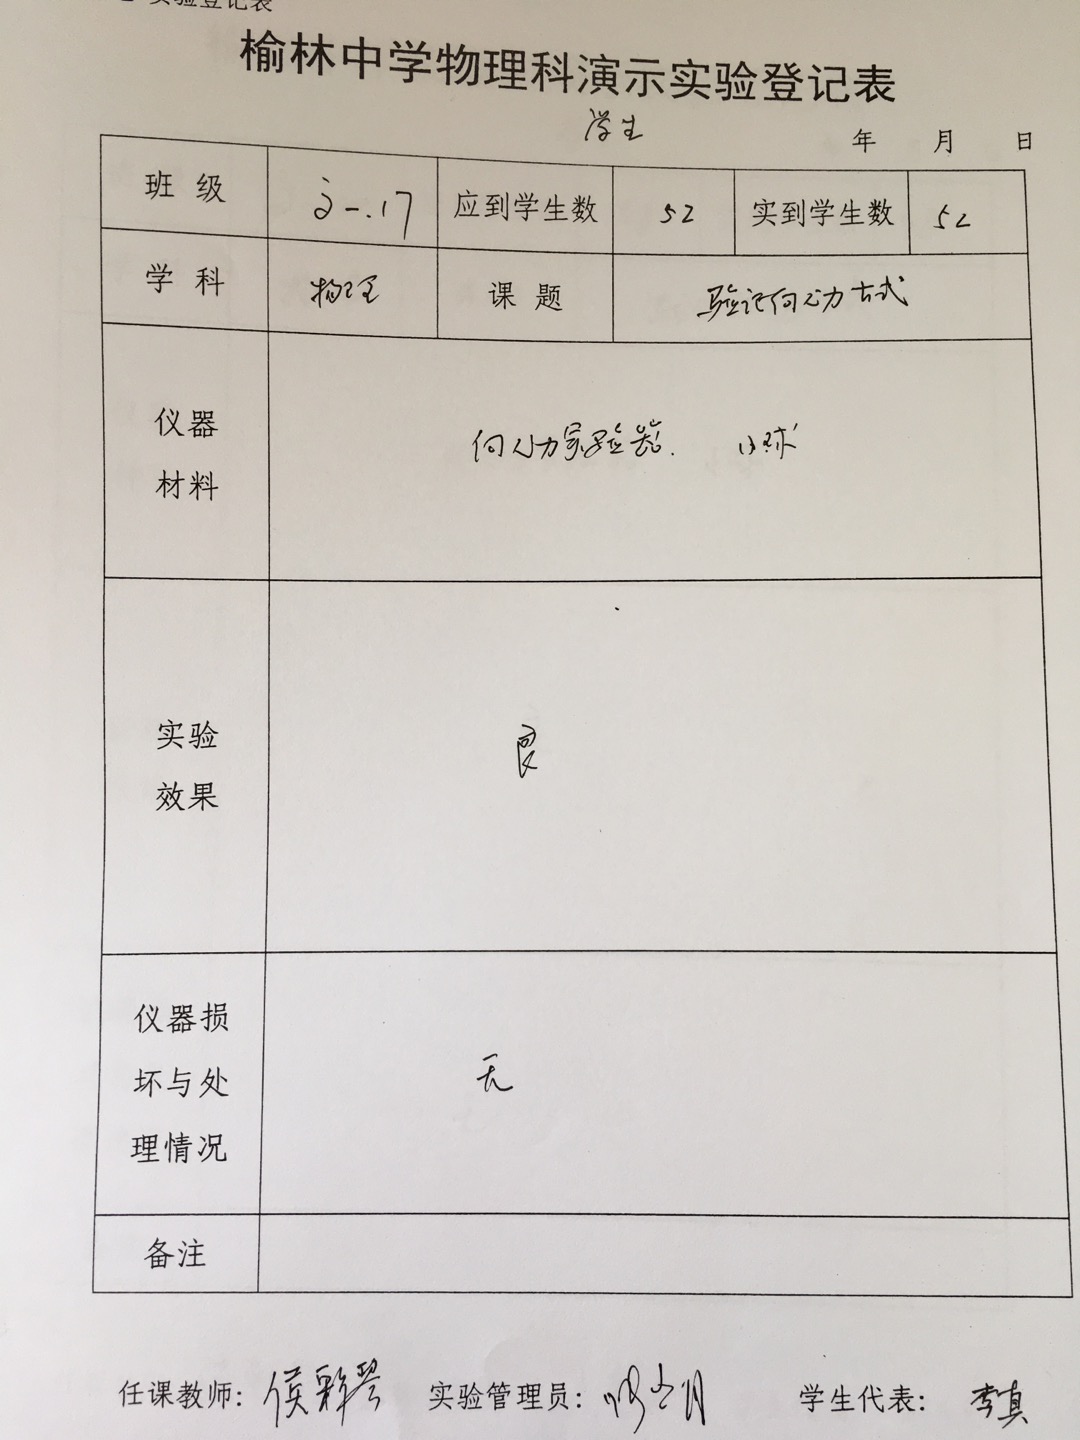 实验登记表
榆林中学物理科演示实验登记表
学生
年 月 日
班 级 17 应到学生数 52 实到学生数 52
学 科 物理 课 题 验证向心力公式
仪器
材料
向心力实验器. 小球
实验
效果
良
仪器损
坏与处
理情况
无
备注
任课教师: 侯彩琴 实验管理员: 学生代表: 李真